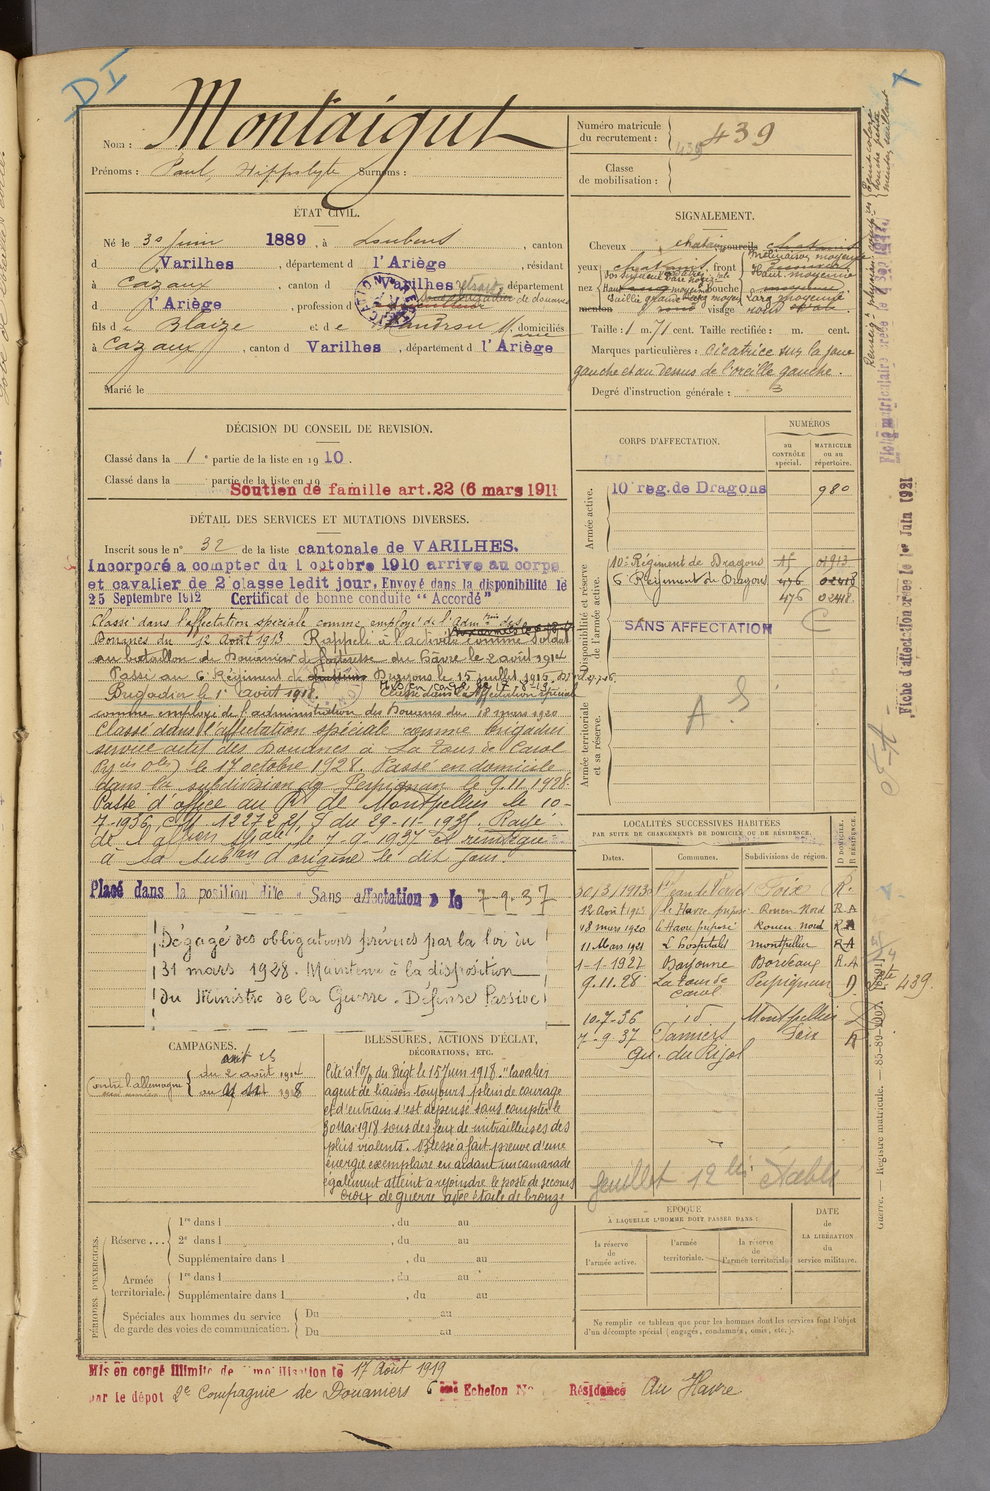 DI
Nom : Montaigut
Prénoms : Paul, Hippolyte Surnoms :
Numéro matricule du recrutement : 439 439
Classe de mobilisation :
ÉTAT CIVIL.
Né le 30 juin 1889, à Loubens, canton
d Varilhes, département d l'Ariège, résidant
à Cazaux, canton d Varilhes, département
d l'Ariège, profession d retraité de douanes
fils d Blaize et de domiciliés
à Cazaux, canton d Varilhes, département d l'Ariège
Marié le
SIGNALEMENT.
Cheveux chatain sourcils chatains
yeux chatains, front
nez bouche
menton rond visage ovale.
Taille : 1 m. 71 cent. Taille rectifiée : m. cent.
Marques particulières : Cicatrice sur la joue
gauche et au dessus de l'oreille gauche.
Degré d'instruction générale : 3
DÉCISION DU CONSEIL DE REVISION.
Classé dans la 1e partie de la liste en 1910.
Classé dans la partie de la liste en 19
Soutien de famille art. 22 (6 mars 1911
DÉTAIL DES SERVICES ET MUTATIONS DIVERSES.
Inscrit sous le n° 32 de la liste cantonale de VARILHES.
Incorporé à compter du 1 octobre 1910 arrivé au corps
et cavalier de 2e classe ledit jour. Envoyé dans la disponibilité le
25 Septembre 1912 Certificat de bonne conduite "Accordé"
Classé dans l'affectation spéciale comme employé de l'admon des
Douanes du 12 Août 1913 Rappelé à l'activité comme soldat
au bataillon de Douaniers de forteresse du Hâvre le 2 août 1914
Passé au 6e Régiment de Dragons le 15 juillet 1916
Brigadier le 1er août 1918. Classé dans l'affectation spéciale
comme employé de l'administration des Douanes du 18 mars 1920
Classé dans l'affectation spéciale comme brigadier
service actif des Douanes à La Tour de Carol
le 17 octobre 1928. Passé en domicile
dans la subdivision de Perpignan le 9.11.1928
Passé d'office au de Montpellier le 10-
7-1936, 29-11-1935. Rayé
de l'affon spale le 7-9-1937 et réintégré
à sa subon d'origine le dit jour.
Placé dans la position dite « Sans affectation » le 7-9-37
Dégagé des obligations prévues par la loi du
31 mars 1928. Maintenu à la disposition
du Ministre de la Guerre. Défense Passive
CORPS D'AFFECTATION.
NUMÉROS
au CONTRÔLE spécial.
MATRICULE ou au répertoire.
Armée active.
10e reg. de Dragons 980
Disponibilité et réserve de l'armée active.
10e Régiment de Dragons 15 01913
6 Régiment de Dragons 476 02418
476 02418
SANS AFFECTATION C
Armée territoriale et sa réserve.
A S
LOCALITÉS SUCCESSIVES HABITÉES
PAR SUITE DE CHANGEMENTS DE DOMICILE OU DE RÉSIDENCE.
Dates. Communes. Subdivisions de région. D DOMICILE. R RÉSIDENCE.
30/3/1913 Foix R.
12 Août 1913 le Havre préposé Rouen Nord R.A
18 mars 1920 le Havre préposé Rouen nord R.A
11 Mars 1921 L'Hospitalet Montpellier R-A
1-1-1927 Bayonne Bordeaux R.A
9.11.28 La Tour de Carol Perpignan D
10-7-36 id Montpellier
7-9-37 Pamiers Foix R
feuillet 12 bis établi
CAMPAGNES.
Contre l'allemagne { du 2 août 1914
au 1918
BLESSURES, ACTIONS D'ÉCLAT,
DÉCORATIONS, ETC.
Cité à l'o/ du Régt le 15 Juin 1918. "Cavalier
agent de liaison toujours plein de courage
et d'entrain s'est dépensé sans compter le
30 Mai 1918 sous des feux de mitrailleuses des
plus violents. Blessé a fait preuve d'une
énergie exemplaire en aidant un camarade
également atteint à rejoindre le poste de secours
Croix de guerre avec étoile de bronze
PÉRIODES D'EXERCICES.
Réserve ... 1re dans l , du au
2e dans l , du au
Supplémentaire dans l , du au
Armée territoriale. 1re dans l , du au
Supplémentaire dans l , du au
Spéciales aux hommes du service de garde des voies de communication. Du au
Du au
ÉPOQUE
À LAQUELLE L'HOMME DOIT PASSER DANS :
la réserve de l'armée active.
l'armée territoriale.
la réserve de l'armée territoriale.
DATE de LA LIBÉRATION du service militaire.
Ne remplir ce tableau que pour les hommes dont les services font l'objet
d'un décompte spécial (engagés, condamnés, omis, etc.).
Mis en congé illimité de démobilisation le 17 Août 1919
par le dépôt 2e Compagnie de Douaniers 6 ème Echelon N° Résidence Au Havre
Fiche d'affectation créée le 1er Juin 1921
Guerre. — Registre matricule. — 85-89-1907.
439.